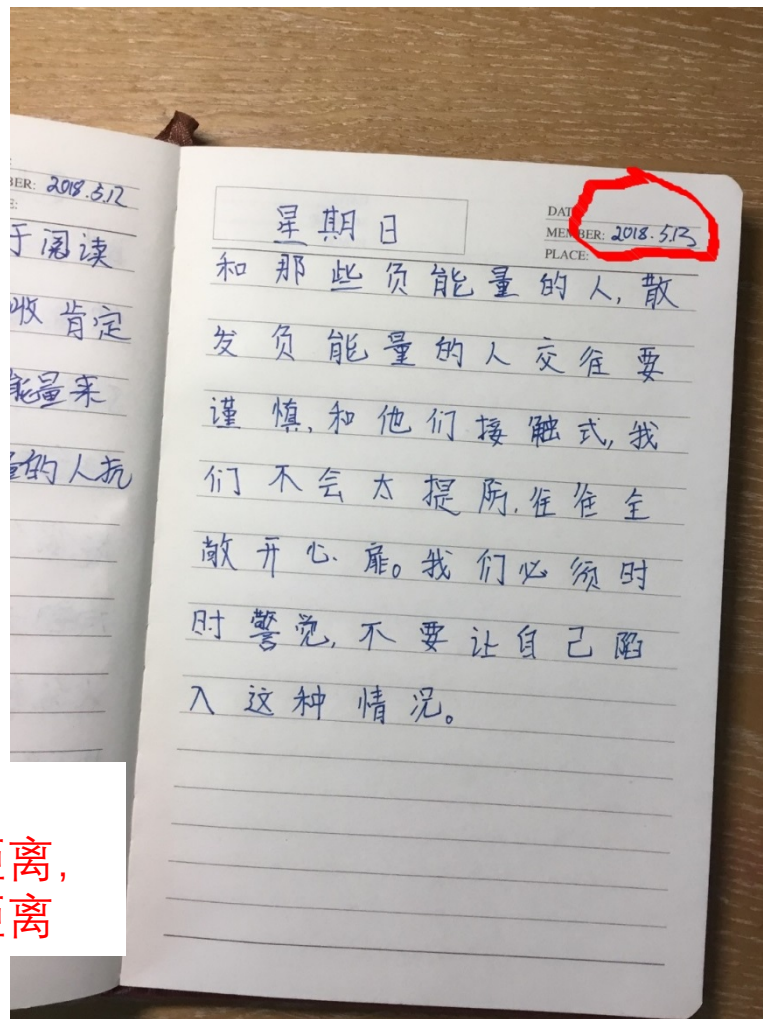 BER: 2018.5.12
E:
于阅读
收肯定
能量来
的人抗
星期日
DAT
MEMBER: 2018.5.13
PLACE:
和那些负能量的人,散
发负能量的人交往要
谨慎,和他们接触式,我
们不会太提防,往往全
敞开心扉。我们必须时
时警觉,不要让自己陷
入这种情况。
距离,
距离